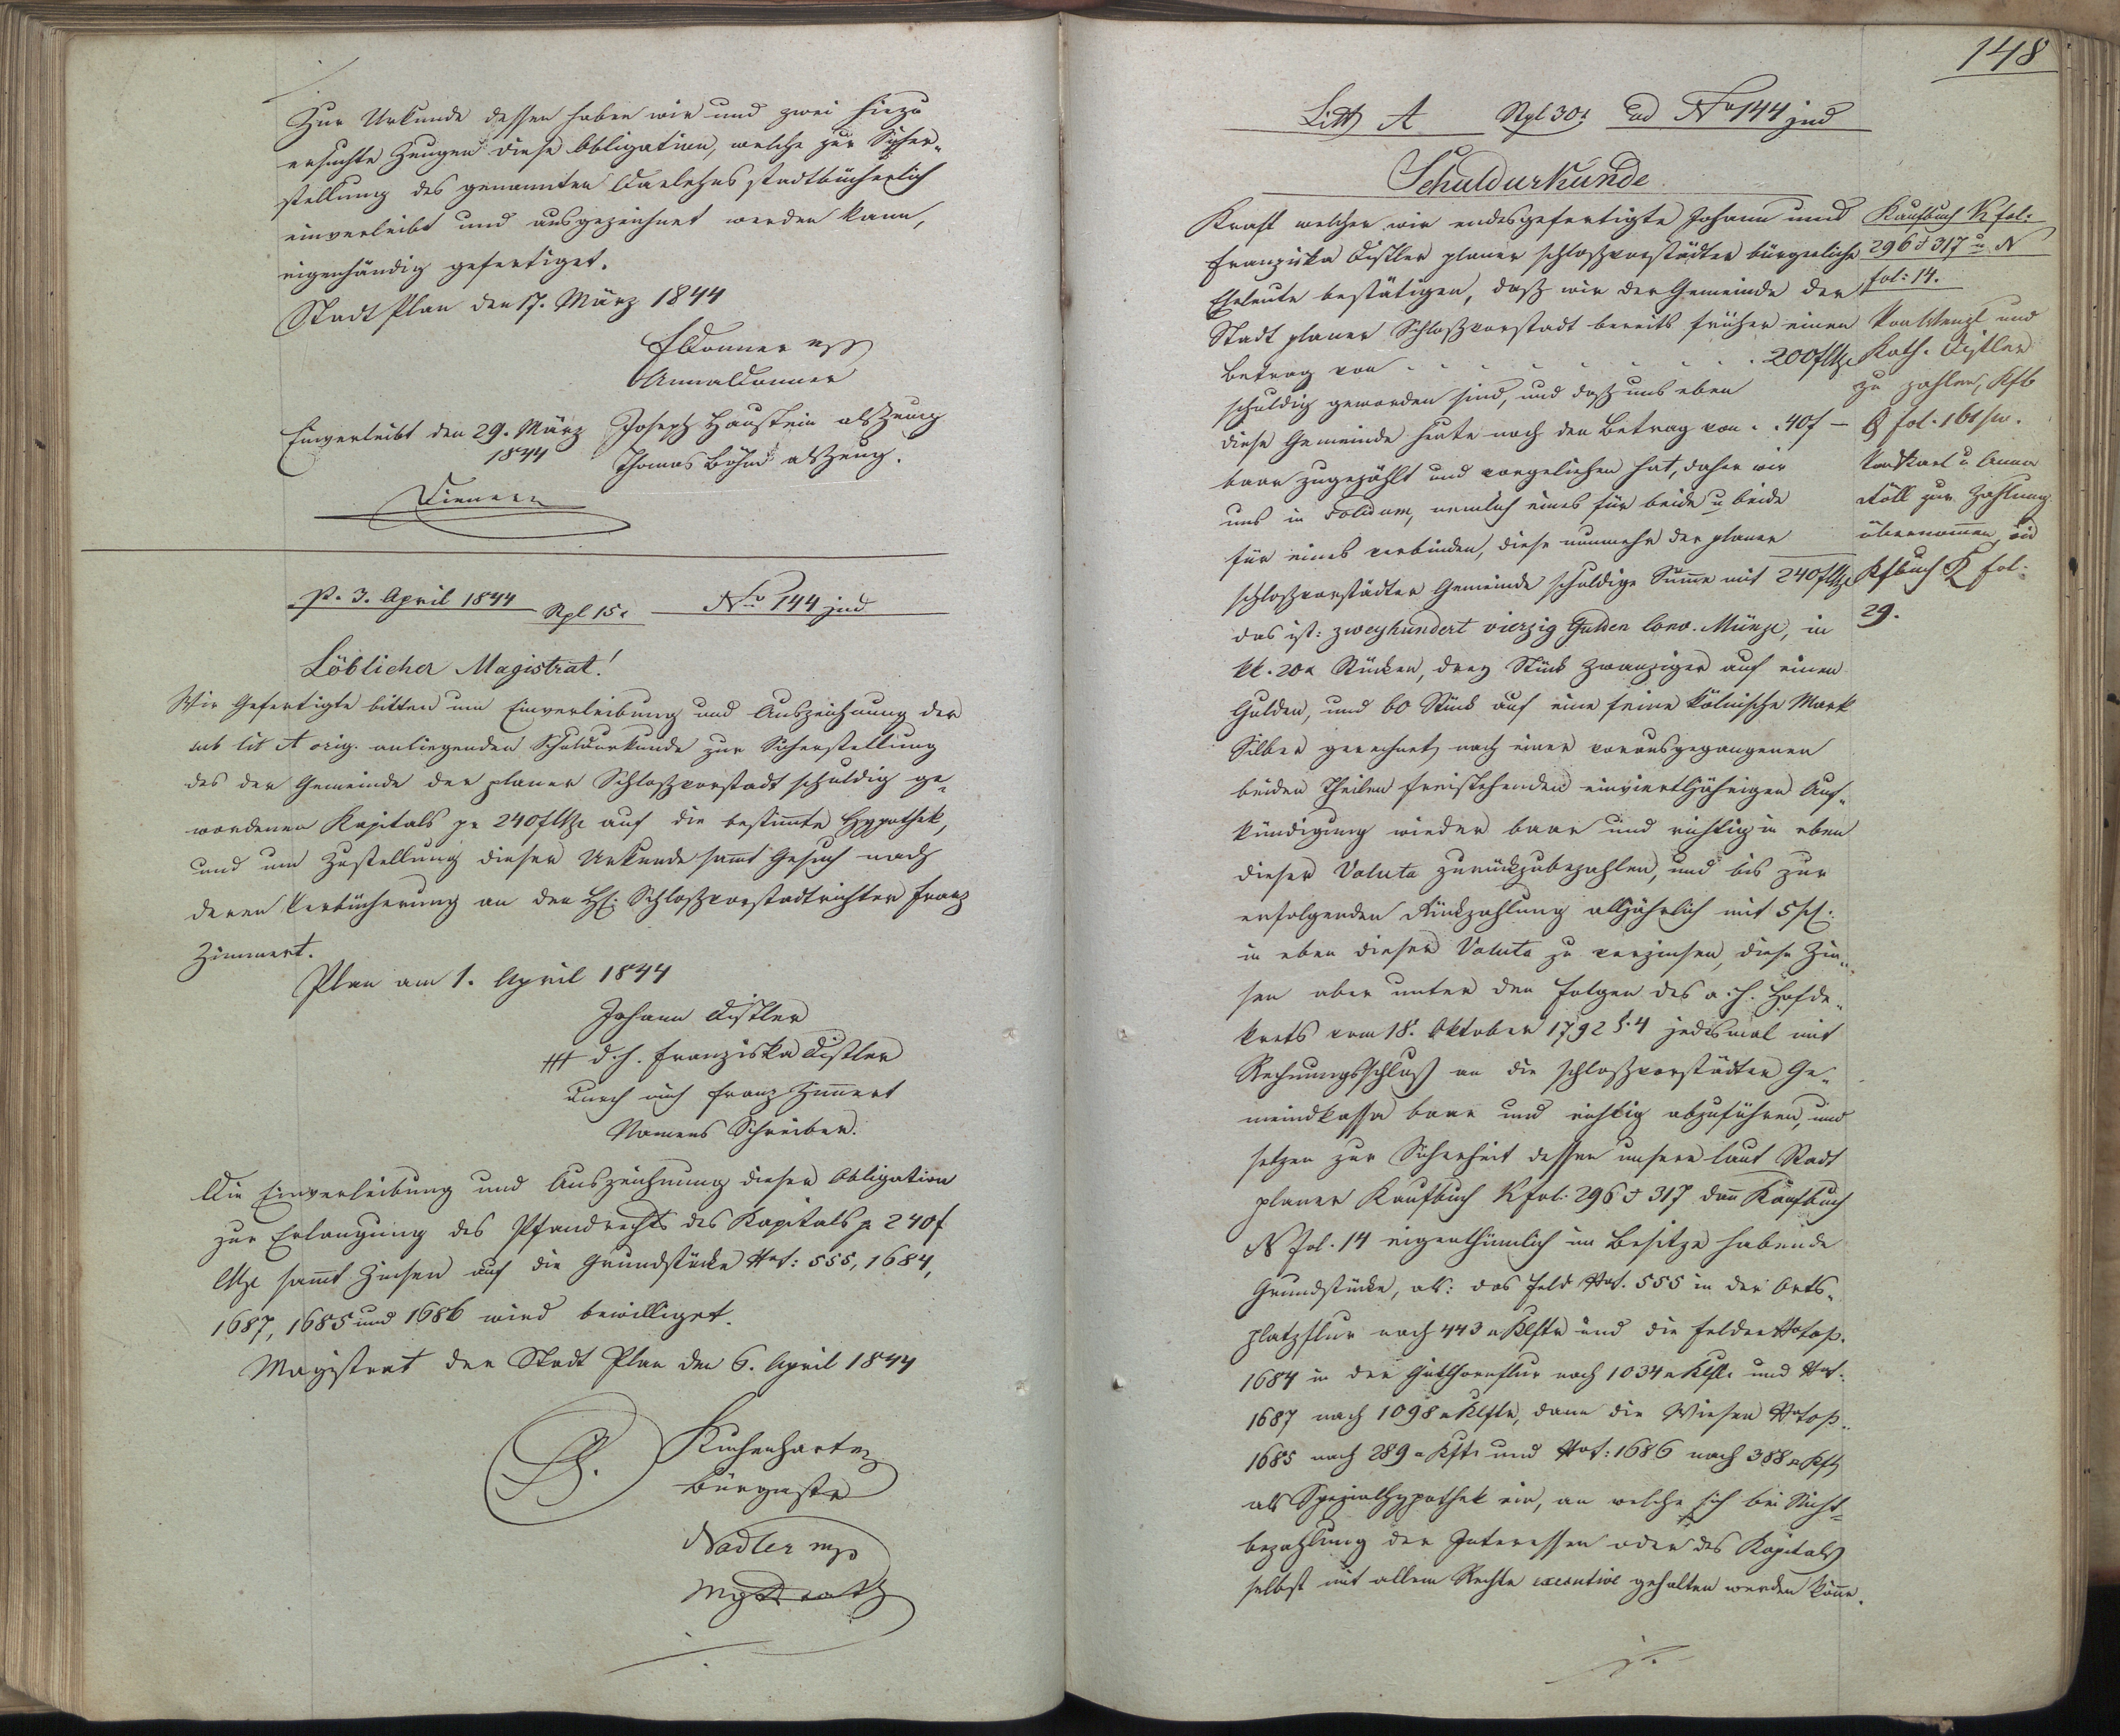 Zur Urkunde dessen haben wir und zwei hiezu
ersuchte Zeugen diese Obligation, welche zur Sicher-
stellung des genannten Darlehns stadtbücherlich
einverleibt und ausgezeichnet werden kann,
eigenhändig gefertiget.
Stadt Plan den 17. März 1844
Donner
Anna Donner
Joseph Haustein als Zeug
Thomas Böhm als Zeug.
Einverleibt den 29. März
1844
P. 3. April 1844 Stpl 15 No 144 jud
Löblicher Magistrat!
Wir Gefertigte bitten um Einverleibung und Auszeichnung der
sub lit A orig. anliegenden Schuldurkunde zur Sicherstellung
des der Gemeinde der planer Schloßvorstadt schuldig ge-
wordenen Kapitals pr 240f CMze auf die bestimmte Hypothek,
und um Zustellung dieser Urkunde samt Gesuch nach
deren Verbücherung an den H: Schloßvorstadtrichter Franz
Zimmert.
Plan am 1. April 1844
Johann Distler
+++ d. h. Franziska Distler
durch mich Franz Zimmert
Namens Schreiber.
Die Einverleibung und Auszeichnung dieser Obligation
zur Erlangung des Pfandrechts des Kapitals pr 240f
CMze samt Zinsen auf die Grundstücke Nrt: 555, 1684,
1687, 1685 und 1686 wird bewilliget.
Magistrat der Stadt Plan den 6. April 1844
LS.
Bürgmstr
Nadler mp
Mgstrath
148
Litt A Stpl 30 ad No 144 jud
Schuldurkunde
Kraft welcher wir endesgefertigte Johann und
Franziska Distler planer schloßvorstädter bürgerliche
Eheleute bestätigen, daß wir der Gemeinde der
Stadt planer Schloßvorstadt bereits früher einen
Betrag von . . . . . . . 200f CMze
schuldig geworden sind, und daß uns eben
diese Gemeinde heute noch den Betrag von . . 40f —
baar zugezählt und vorgeliehen hat, daher wir
uns in Solidum, nemlich eines für beide u beide
für eines verbinden, diese nunmehr der planer
schloßvorstädter Gemeinde schuldige Summe mit 240f CMze
das ist: zweyhundert vierzig Gulden Conv. Münze, in
kk. 20x Stücken, drey Stück Zwanziger auf einen
Gulden, und 60 Stück auf eine feine kölnische Mark
Silber gerechnet, nach einer vorausgegangenen
beiden Theilen freistehenden einvierteljährigen Auf-
kündigung wieder baar und richtig in eben
dieser Valuta zurückzubezahlen, und bis zur
erfolgenden Rückzahlung alljährlich mit 5 pC:
in eben dieser Valuta zu verzinsen, diese Zin-
sen aber unter den Folgen des a. h. Hofde-
krets vom 18. Oktober 1792 §. 4 jedesmal mit
Rechnungsschluß an die schloßvorstädter Ge-
meindkassa baar und richtig abzuführen, und
setzen zur Sicherheit dessen unsere laut Stadt
planer Kaufbuch R fol: 296 & 317 dann Kaufbuch
N fol. 14 eigenthümlich im Besitze habende
Grundstücke, als: das Feld Nrt. 555 in der Orts-
platzflur nach 443 Klftr und die Felder Ntop.
1684 in der nach 1034 Klft. und Nrt.
1687 nach 1098 Klftr, dann die Wiesen Ntop.
1685 nach 289 Kft. und Nrt: 1686 nach 388 Kft
als Spezialhypothek ein, an welche sich bei Nicht-
bezahlung der Interessen oder des Kapitals
selbst mit allem Rechte executive gehalten werden könne.
Kaufbuch R fol:
296 & 317 u N
fol: 14.
Von Wenzl und
Kath. Distler
zu zahlen, Kfb
Q fol. 161
Von Karl u Anna
Köll zur Zahlung
übernommen, vid
Kfbuch fol.
29.